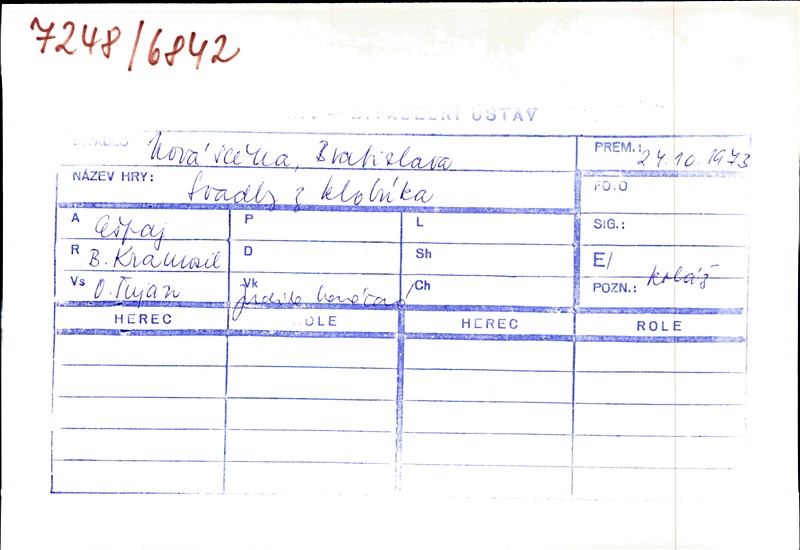 7248/6842
DIVADELNÍ ÚSTAV
DIVADLO Nová scéna, Bratislava
PREM.: 24.10.1973
NÁZEV HRY: Svadby z klobúka
FOTO
A P L SIG.:
R B. Kramosil D Sh E/
Vs O. Šujan Vk Judita Ch POZN.: koláž
HEREC ROLE HEREC ROLE